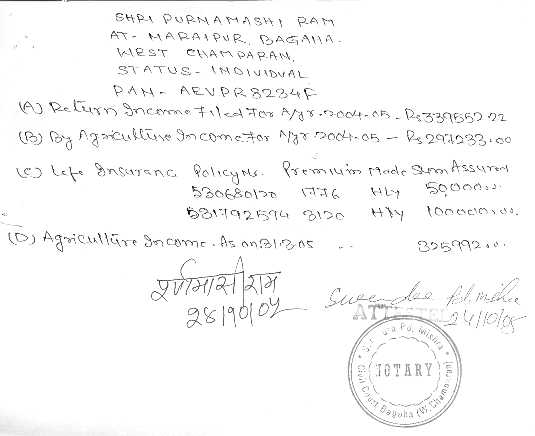 SHRI PURNAMASHI RAM
AT- MARAIPUR, BAGAHA.
WEST CHAMPARAN,
STATUS- INDIVIDUAL
PAN- AEVPR8234F
(A) Return Income Filed For A/yr. 2004-05 - Rs339552.22
(B) By Agriculture Income For A/yr. 2004-05 - Rs297233.00
(C) Life Insuranc Policy No. Premium Mode Sum Assured
530680120 1776 Hly 50,000.00
531792594 3120 Hly 100000.00
(D) Agriculture Income. As on 31.3.05 .. 325992.00
पूर्णमासी राम
Surendra Pd. Mishra
ATTESTED
24/10/05
NOTARY
Civil Court Bagaha (W. Champaran)